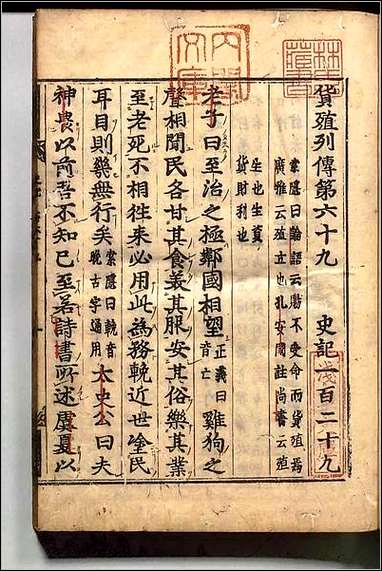 貨殖列傳第六十九 史記一百二十九
索隱曰論語云賜不受命而貨殖焉
廣雅云殖立也孔安國註尚書云殖
生也生資
貨財利也
老子曰至治之極鄰國相望正義曰音亡雞狗之
聲相聞民各甘其食美其服安其俗樂其業
至老死不相往來必用此為務輓近世塗民
耳目則幾無行矣索隱曰輓音晚古字通用太史公曰夫
神農以前吾不知已至若詩書所述虞夏以
內閣文庫
林氏藏書